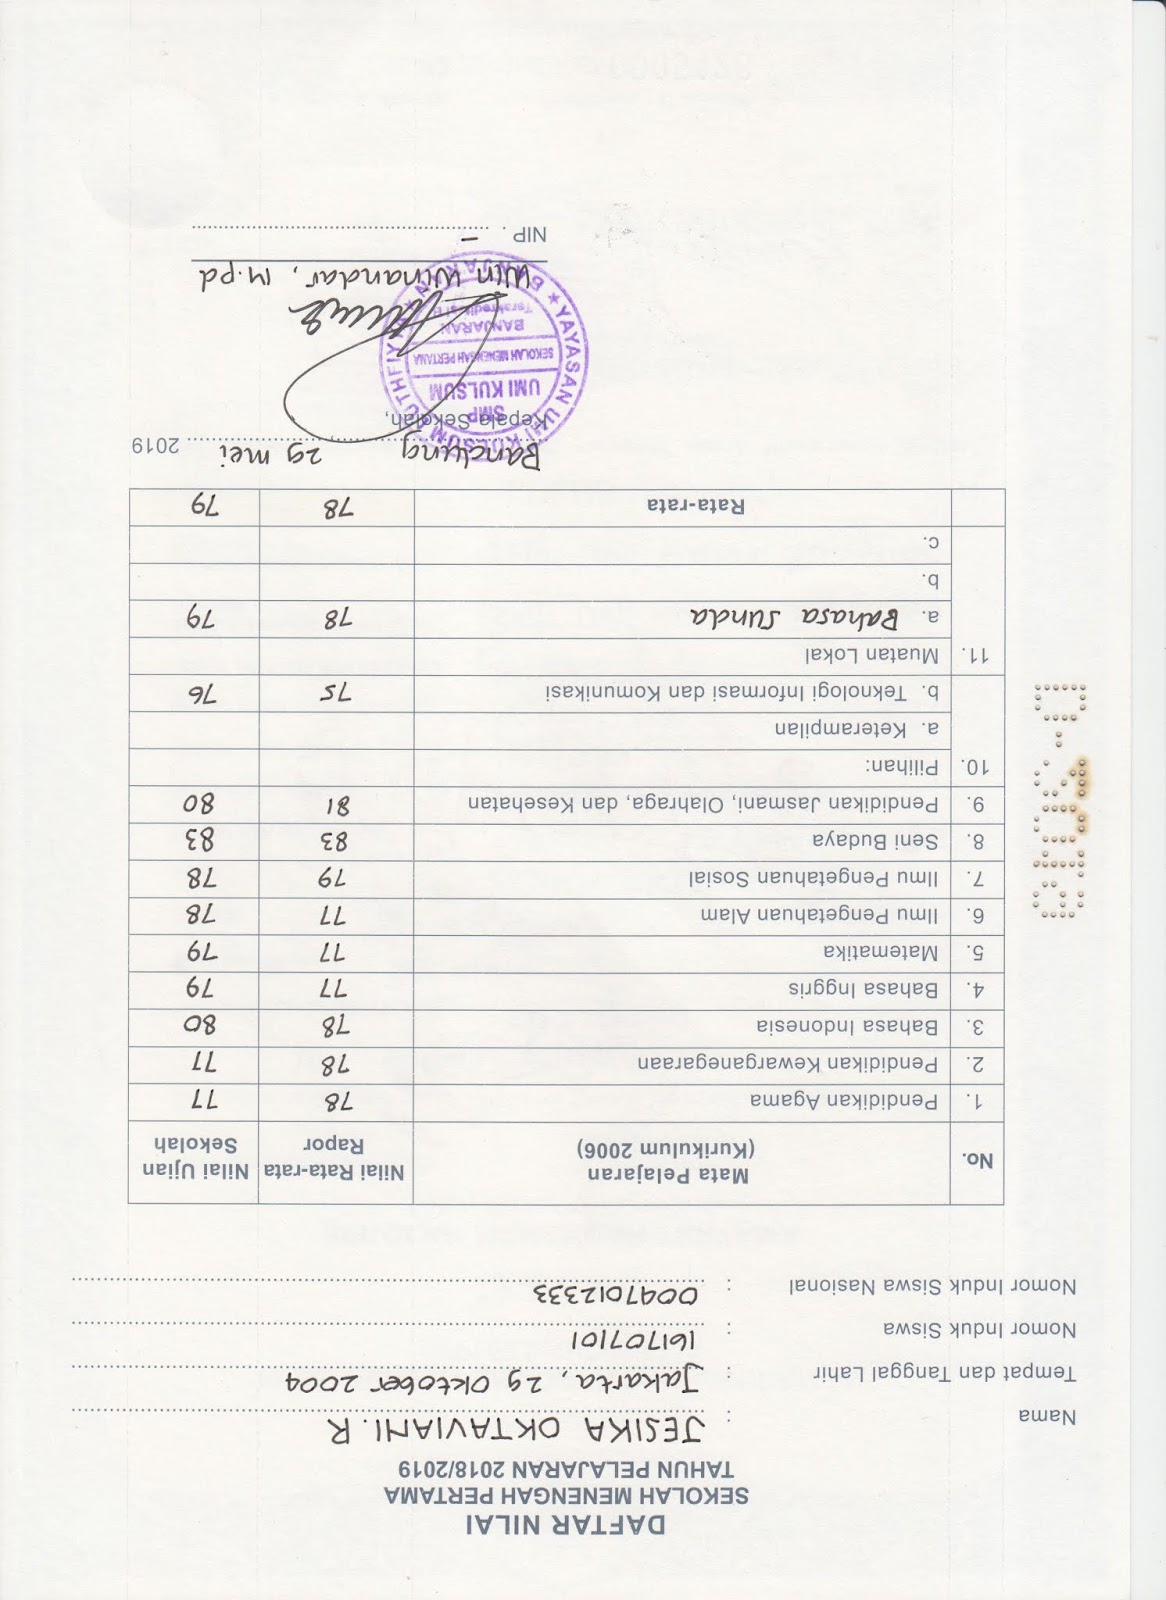 DAFTAR NILAI
SEKOLAH MENENGAH PERTAMA
TAHUN PELAJARAN 2018/2019
Nama : JESIKA OKTAVIANI. R
Tempat dan Tanggal Lahir : Jakarta, 29 Oktober 2004
Nomor Induk Siswa : 161707101
Nomor Induk Siswa Nasional : 0047012333
No. Mata Pelajaran (Kurikulum 2006) Nilai Rata-rata Rapor Nilai Ujian Sekolah
1. Pendidikan Agama 78 77
2. Pendidikan Kewarganegaraan 78 77
3. Bahasa Indonesia 78 80
4. Bahasa Inggris 77 79
5. Matematika 77 79
6. Ilmu Pengetahuan Alam 77 78
7. Ilmu Pengetahuan Sosial 79 78
8. Seni Budaya 83 83
9. Pendidikan Jasmani, Olahraga, dan Kesehatan 81 80
10. Pilihan:
a. Keterampilan
b. Teknologi Informasi dan Komunikasi 75 76
11. Muatan Lokal
a. Bahasa Sunda 78 79
b.
c.
Rata-rata 78 79
Bandung, 29 mei 2019
Kepala Sekolah,
YAYASAN UMI KULSUM
SMP
UMI KULSUM
SEKOLAH MENENGAH PERTAMA
BANJARAN
Win Winandar, M.pd
NIP. -